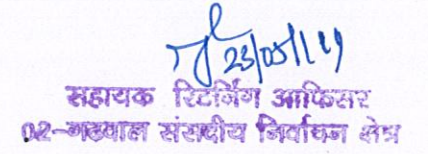 23/05/19
सहायक रिटर्निंग आफिसर
02-गढवाल संसदीय निर्वाचन क्षेत्र